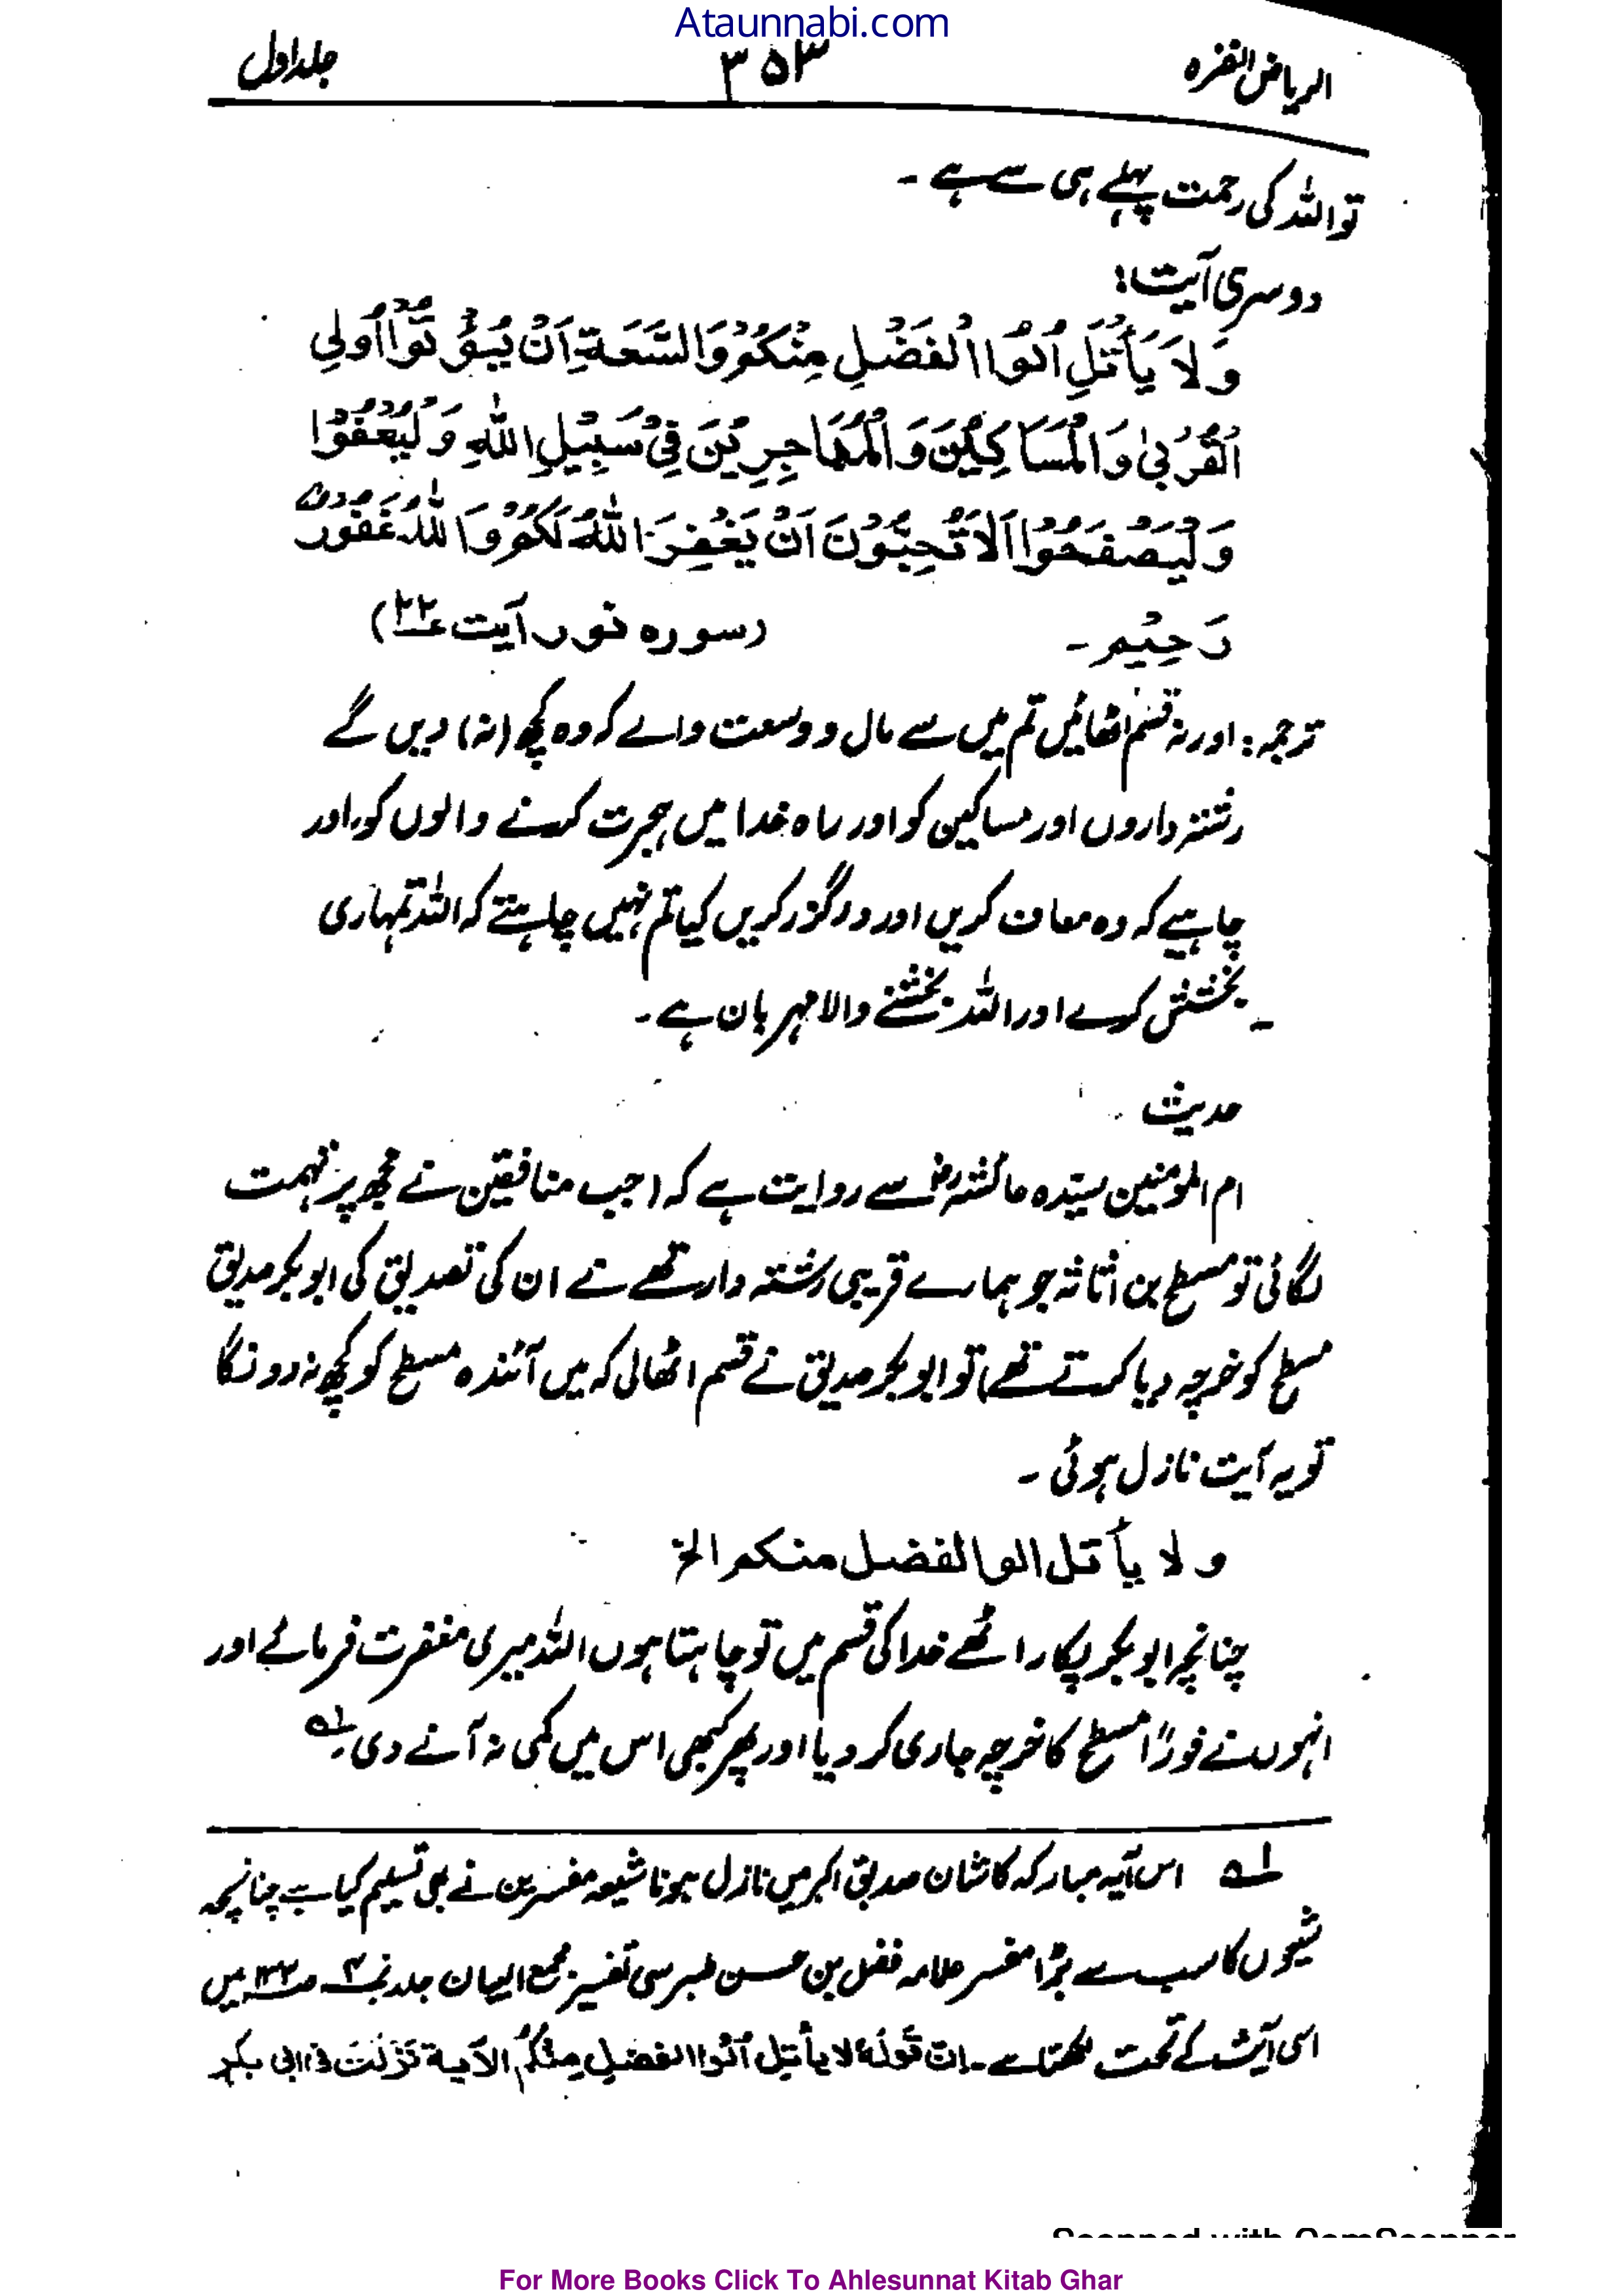 Ataunnabi.com
الریاض النضرہ ۳۵۳ جلد اول
تو اللہ کی رحمت پہلے ہی سے ہے ۔
دوسری آیت:
وَلَا يَأْتَلِ اُولُوا الْفَضْلِ مِنْكُمْ وَالسَّعَةِ اَنْ يُّؤْتُوْٓا اُولِي
الْقُرْبىٰ وَالْمَسَاكِيْنَ وَالْمُهَاجِرِيْنَ فِيْ سَبِيْلِ اللّٰهِ وَلْيَعْفُوْا
وَلْيَصْفَحُوْا اَلَا تُحِبُّوْنَ اَنْ يَّغْفِرَ اللّٰهُ لَكُمْ وَاللّٰهُ غَفُوْرٌ
رَحِيْم ۔ (سورہ نور آیت ۲۲)
ترجمہ: اور نہ قسم اٹھائیں تم میں سے مال و وسعت والے کہ وہ کچھ (نہ) دیں گے
رشتہ داروں اور مساکین کو اور راہ خدا میں ہجرت کرنے والوں کو، اور
چاہیے کہ وہ معاف کریں اور درگزر کریں کیا تم نہیں چاہتے کہ اللہ تمہاری
بخشش کرے اور اللہ بخشنے والا مہربان ہے ۔
حدیث
ام المؤمنین سیّدہ عائشہ رض سے روایت ہے کہ (جب منافقین نے مجھ پر تہمت
لگائی تو مسطح بن اثاثہ جو ہمارے قریبی رشتہ دار تھے نے ان کی تصدیق کی ابوبکر صدیق
مسطح کو خرچہ دیا کرتے تھے) تو ابوبکر صدیق نے قسم اٹھالی کہ میں آئندہ مسطح کو کچھ نہ دونگا
تو یہ آیت نازل ہوئی ۔
ولا يأتل الوا الفضل منكم الخ
چنانچہ ابوبکر پکار اٹھے خدا کی قسم میں تو چاہتا ہوں اللہ میری مغفرت فرمائے اور
انہوں نے فوراً مسطح کا خرچہ جاری کر دیا اور پھر کبھی اس میں کمی نہ آنے دی ۔ لہ
لہ اس آیہ مبارکہ کا شان صدیق اکبر میں نازل ہونا شیعہ مفسرین نے بھی تسلیم کیا ہے چنانچہ
شیعوں کا سب سے بڑا مفسر علامہ فضل بن حسن طبرسی تفسیر مجمع البیان جلد نمبر ۴ ص ۱۳۳ میں
اسی آیت کے تحت لکھتا ہے ۔ اِنَّ قَوْلَهٗ لَا يَأْتَلِ اُولُوا الفَضْلِ مِنْكُمُ الآية نَزَلَتْ فى ابى بكر
Scanned with CamScanner
For More Books Click To Ahlesunnat Kitab Ghar